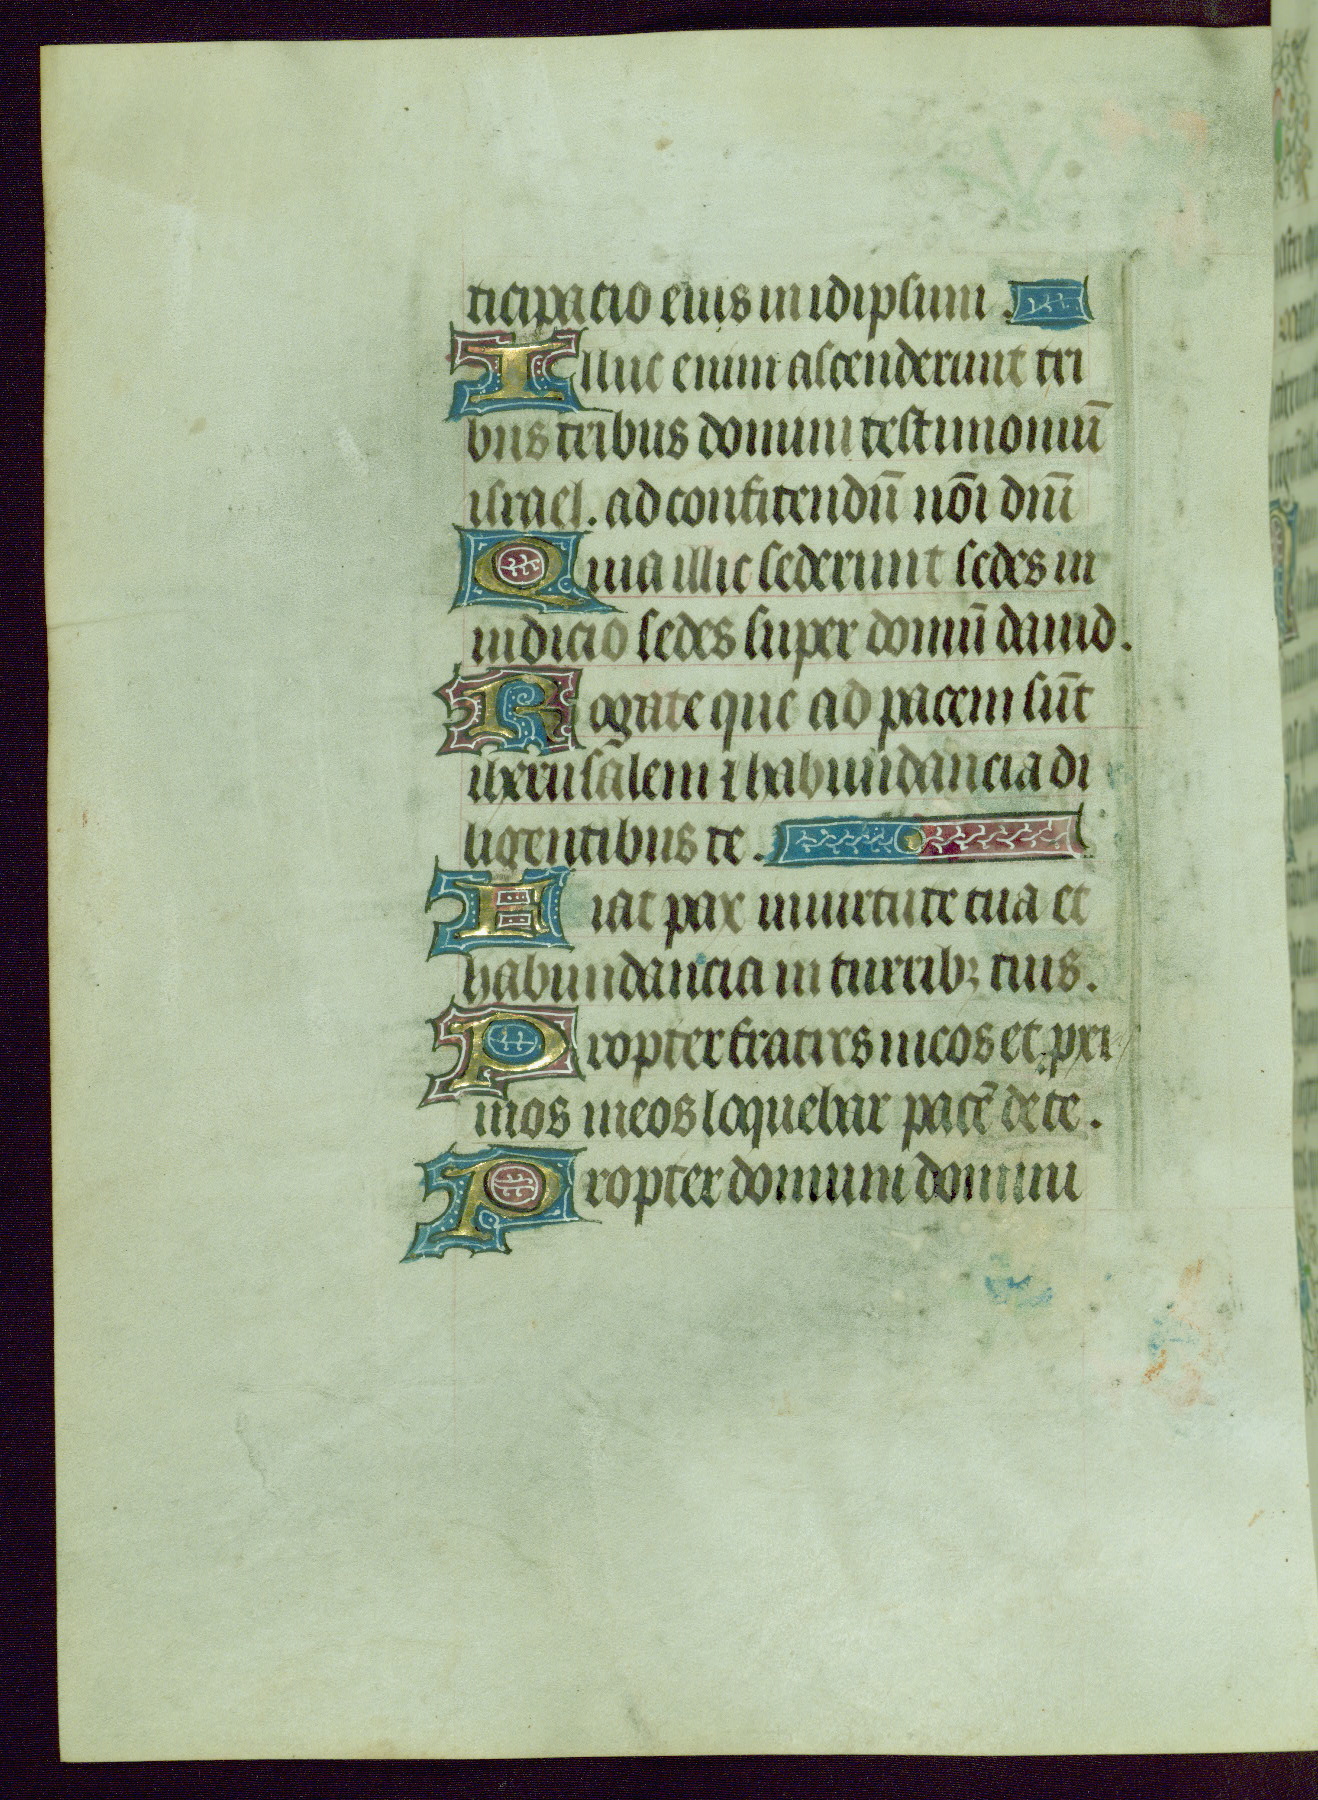 ticipacio eius in idipsum.
Illuc enim ascenderunt tri
bus tribus domini testimoniū
israel. ad confitendū nōi dnī
Quia illic sederunt sedes in
iudicio sedes super domū dauid.
Rogate que ad pacem sūt
iherusalem ⁊ habundancia di
ligentibus te.
Fiat pax in uirtute tua et
habundancia in turribꝫ tuis.
Propter fratres meos et pxi
mos meos loquebar pacē de te.
Propter domum domini